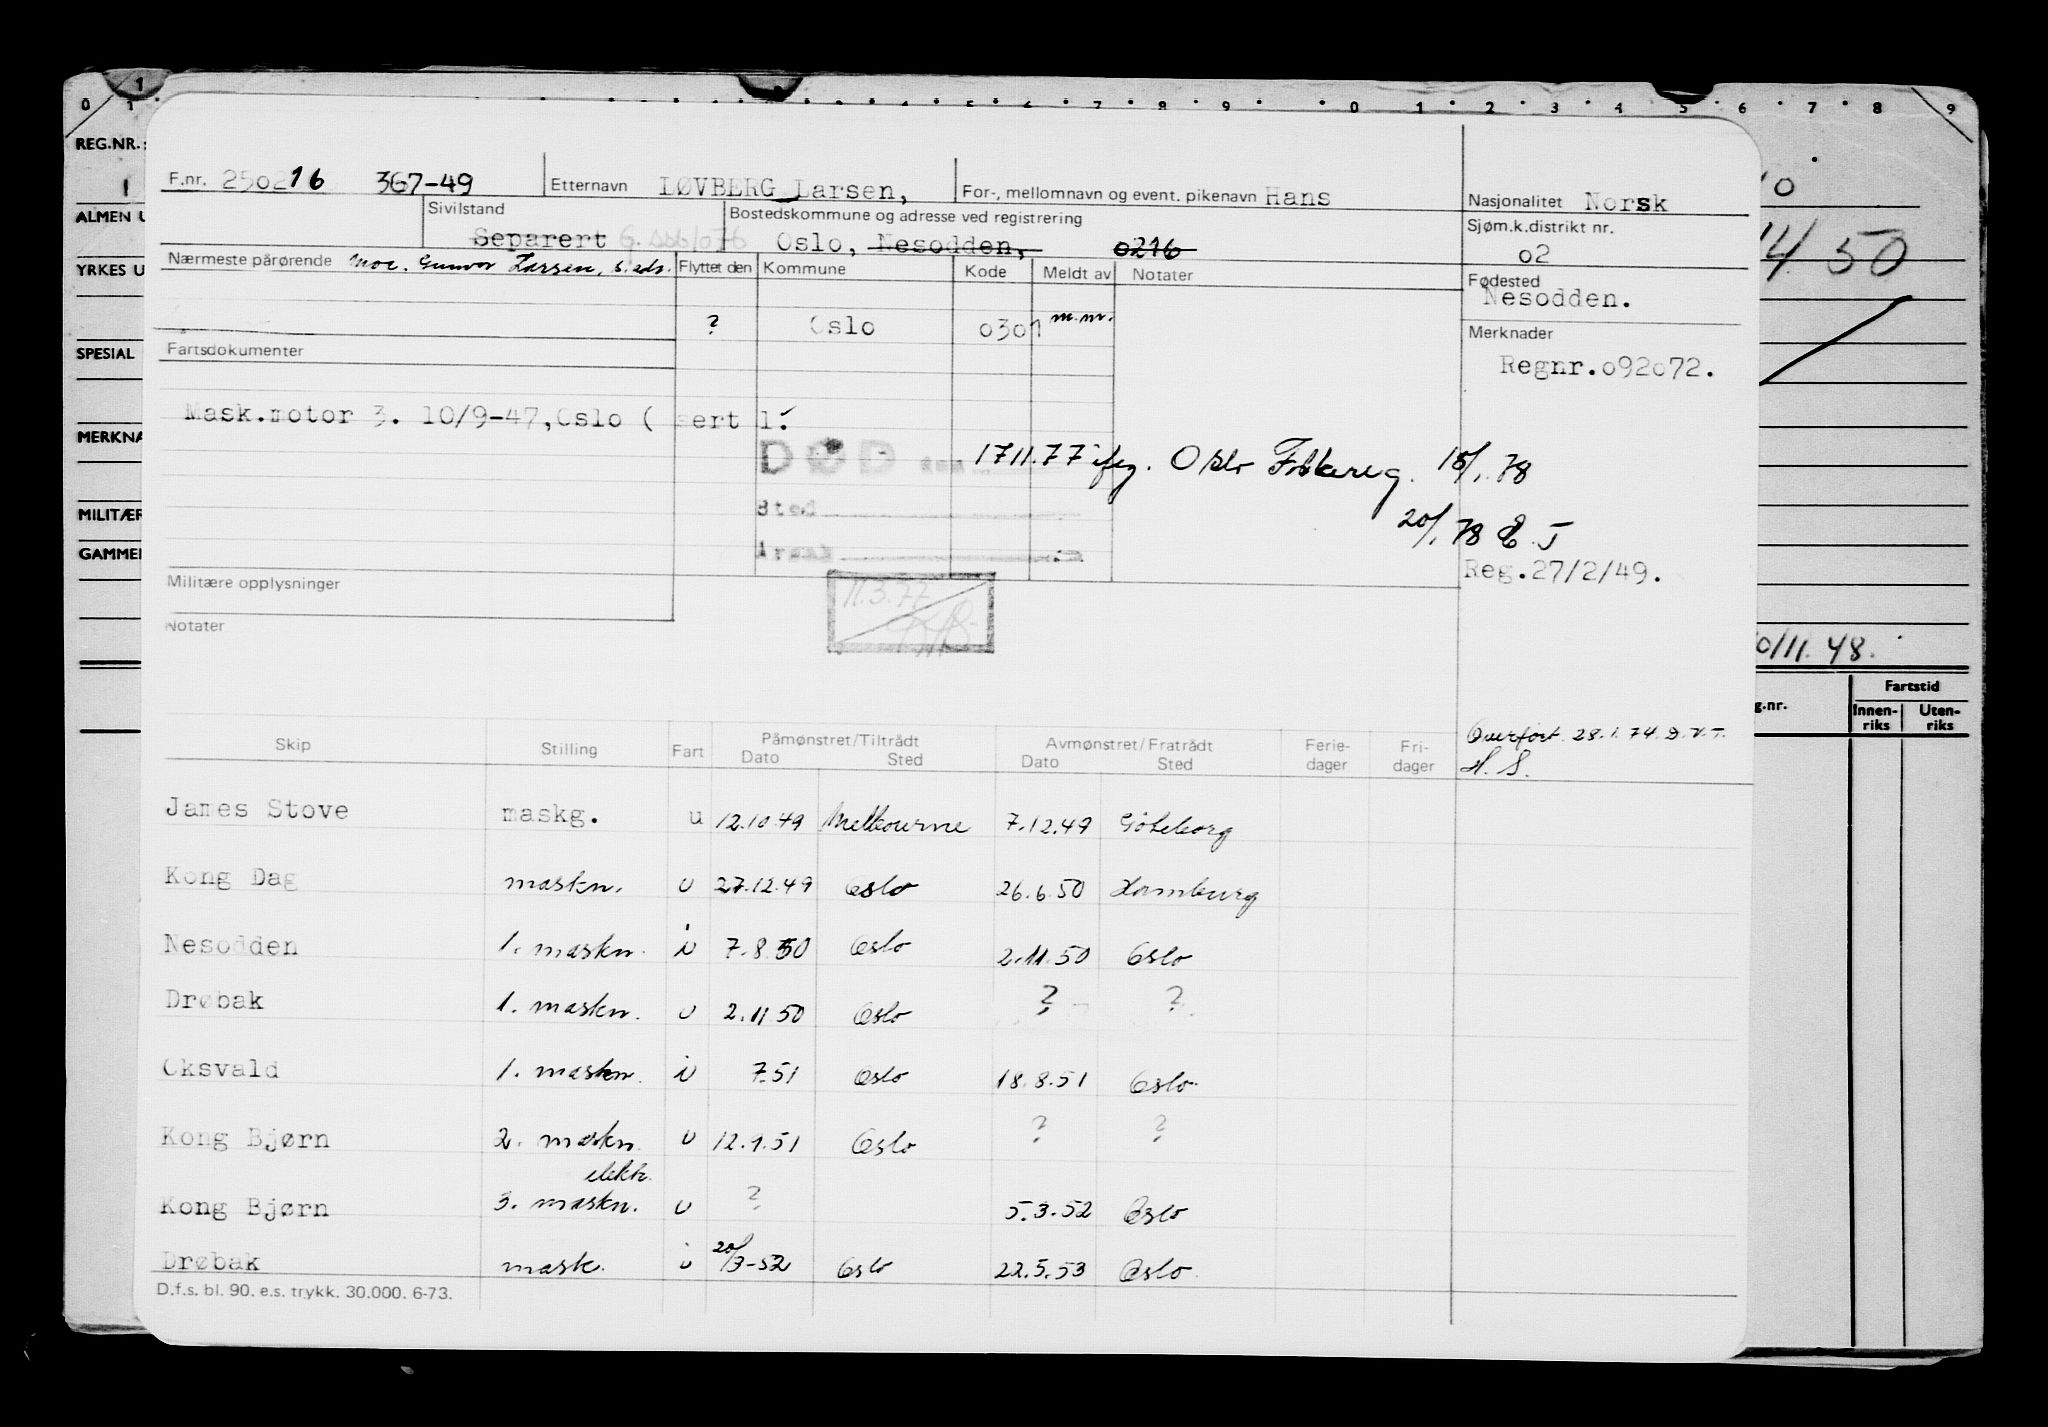 0 1 4 5 6 7 8 9 0 1 2 3 4 5 6 7 8 9
REG.NR.:
F.nr. 250216 367-49 Etternavn LØVBERG Larsen, For-, mellomnavn og event. pikenavn Hans Nasjonalitet Norsk
ALMEN U
Sivilstand Bostedskommune og adresse ved registrering Sjøm.k.distrikt nr.
Separert Oslo, Nesodden, 0216 02
14/ 50
YRKES U
Nærmeste pårørende Mor. Gunvor Larsen, s. ads. Flyttet den Kommune Kode Meldt av Notater Fødested
Nesodden.
? Oslo 0301 m.m.
Merknader
SPESIAL
Fartsdokumenter
Regnr.092072.
Mask.motor 3. 10/9-47,Oslo ( sert 1.
MERKNA
DØD den 1711.77 ifg. Oslo Folkereg. 18/1.78
Sted
MILITÆR
20/1.78 E.J
Årsak
GAMMEL
Reg.27/2/49.
Militære opplysninger
11.3.77
Notater
0/11.48.
g.nr. Fartstid
Innen-riks Uten-riks
Skip Stilling Fart Påmønstret/Tiltrådt Avmønstret/Fratrådt Ferie-dager Fri-dager
Dato Sted Dato Sted
Overført 28.1.74 D.V.T.
H. S.
James Stove maskg. u 12.10.49 Melbourne 7.12.49 Göteborg
Kong Dag maskn. u 27.12.49 Oslo 26.6.50 Hamburg
Nesodden 1. maskn. i 7.8.50 Oslo 2.11.50 Oslo
Drøbak 1. maskn. u 2.11 50 Oslo ? ?
Oksvald 1. maskn. i 7.51 Oslo 18.8.51 Oslo.
Kong Bjørn 2. maskn. u 12.9.51 Oslo ? ?
elektr.
Kong Bjørn 3. maskn. u ? 5.3.52 Oslo
Drøbak mask. i 20/3-52 Oslo 22.5.53 Oslo.
D.f.s. bl. 90. e.s. trykk. 30.000. 6-73.